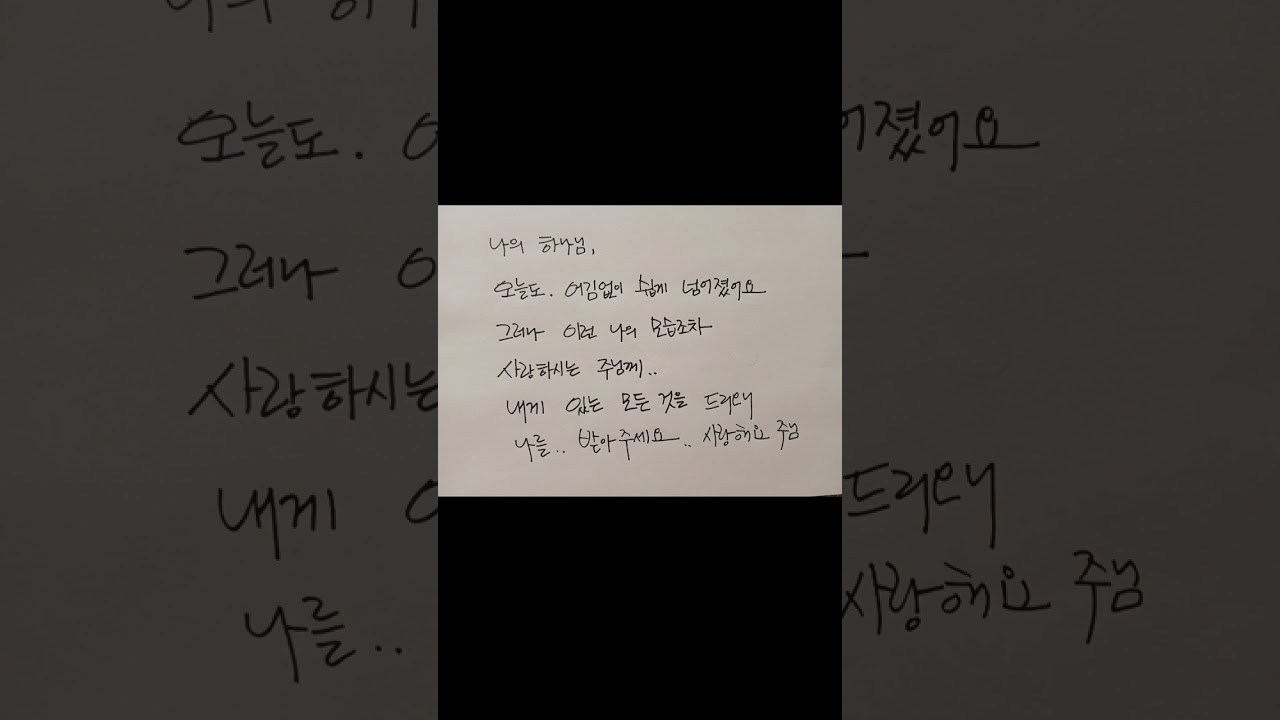 나의 하나님,
오늘도. 어김없이 쉽게 넘어졌어요
그러나 이런 나의 모습조차
사랑하시는 주님께..
내게 있는 모든 것을 드리며
나를.. 받아주세요.. 사랑해요 주님